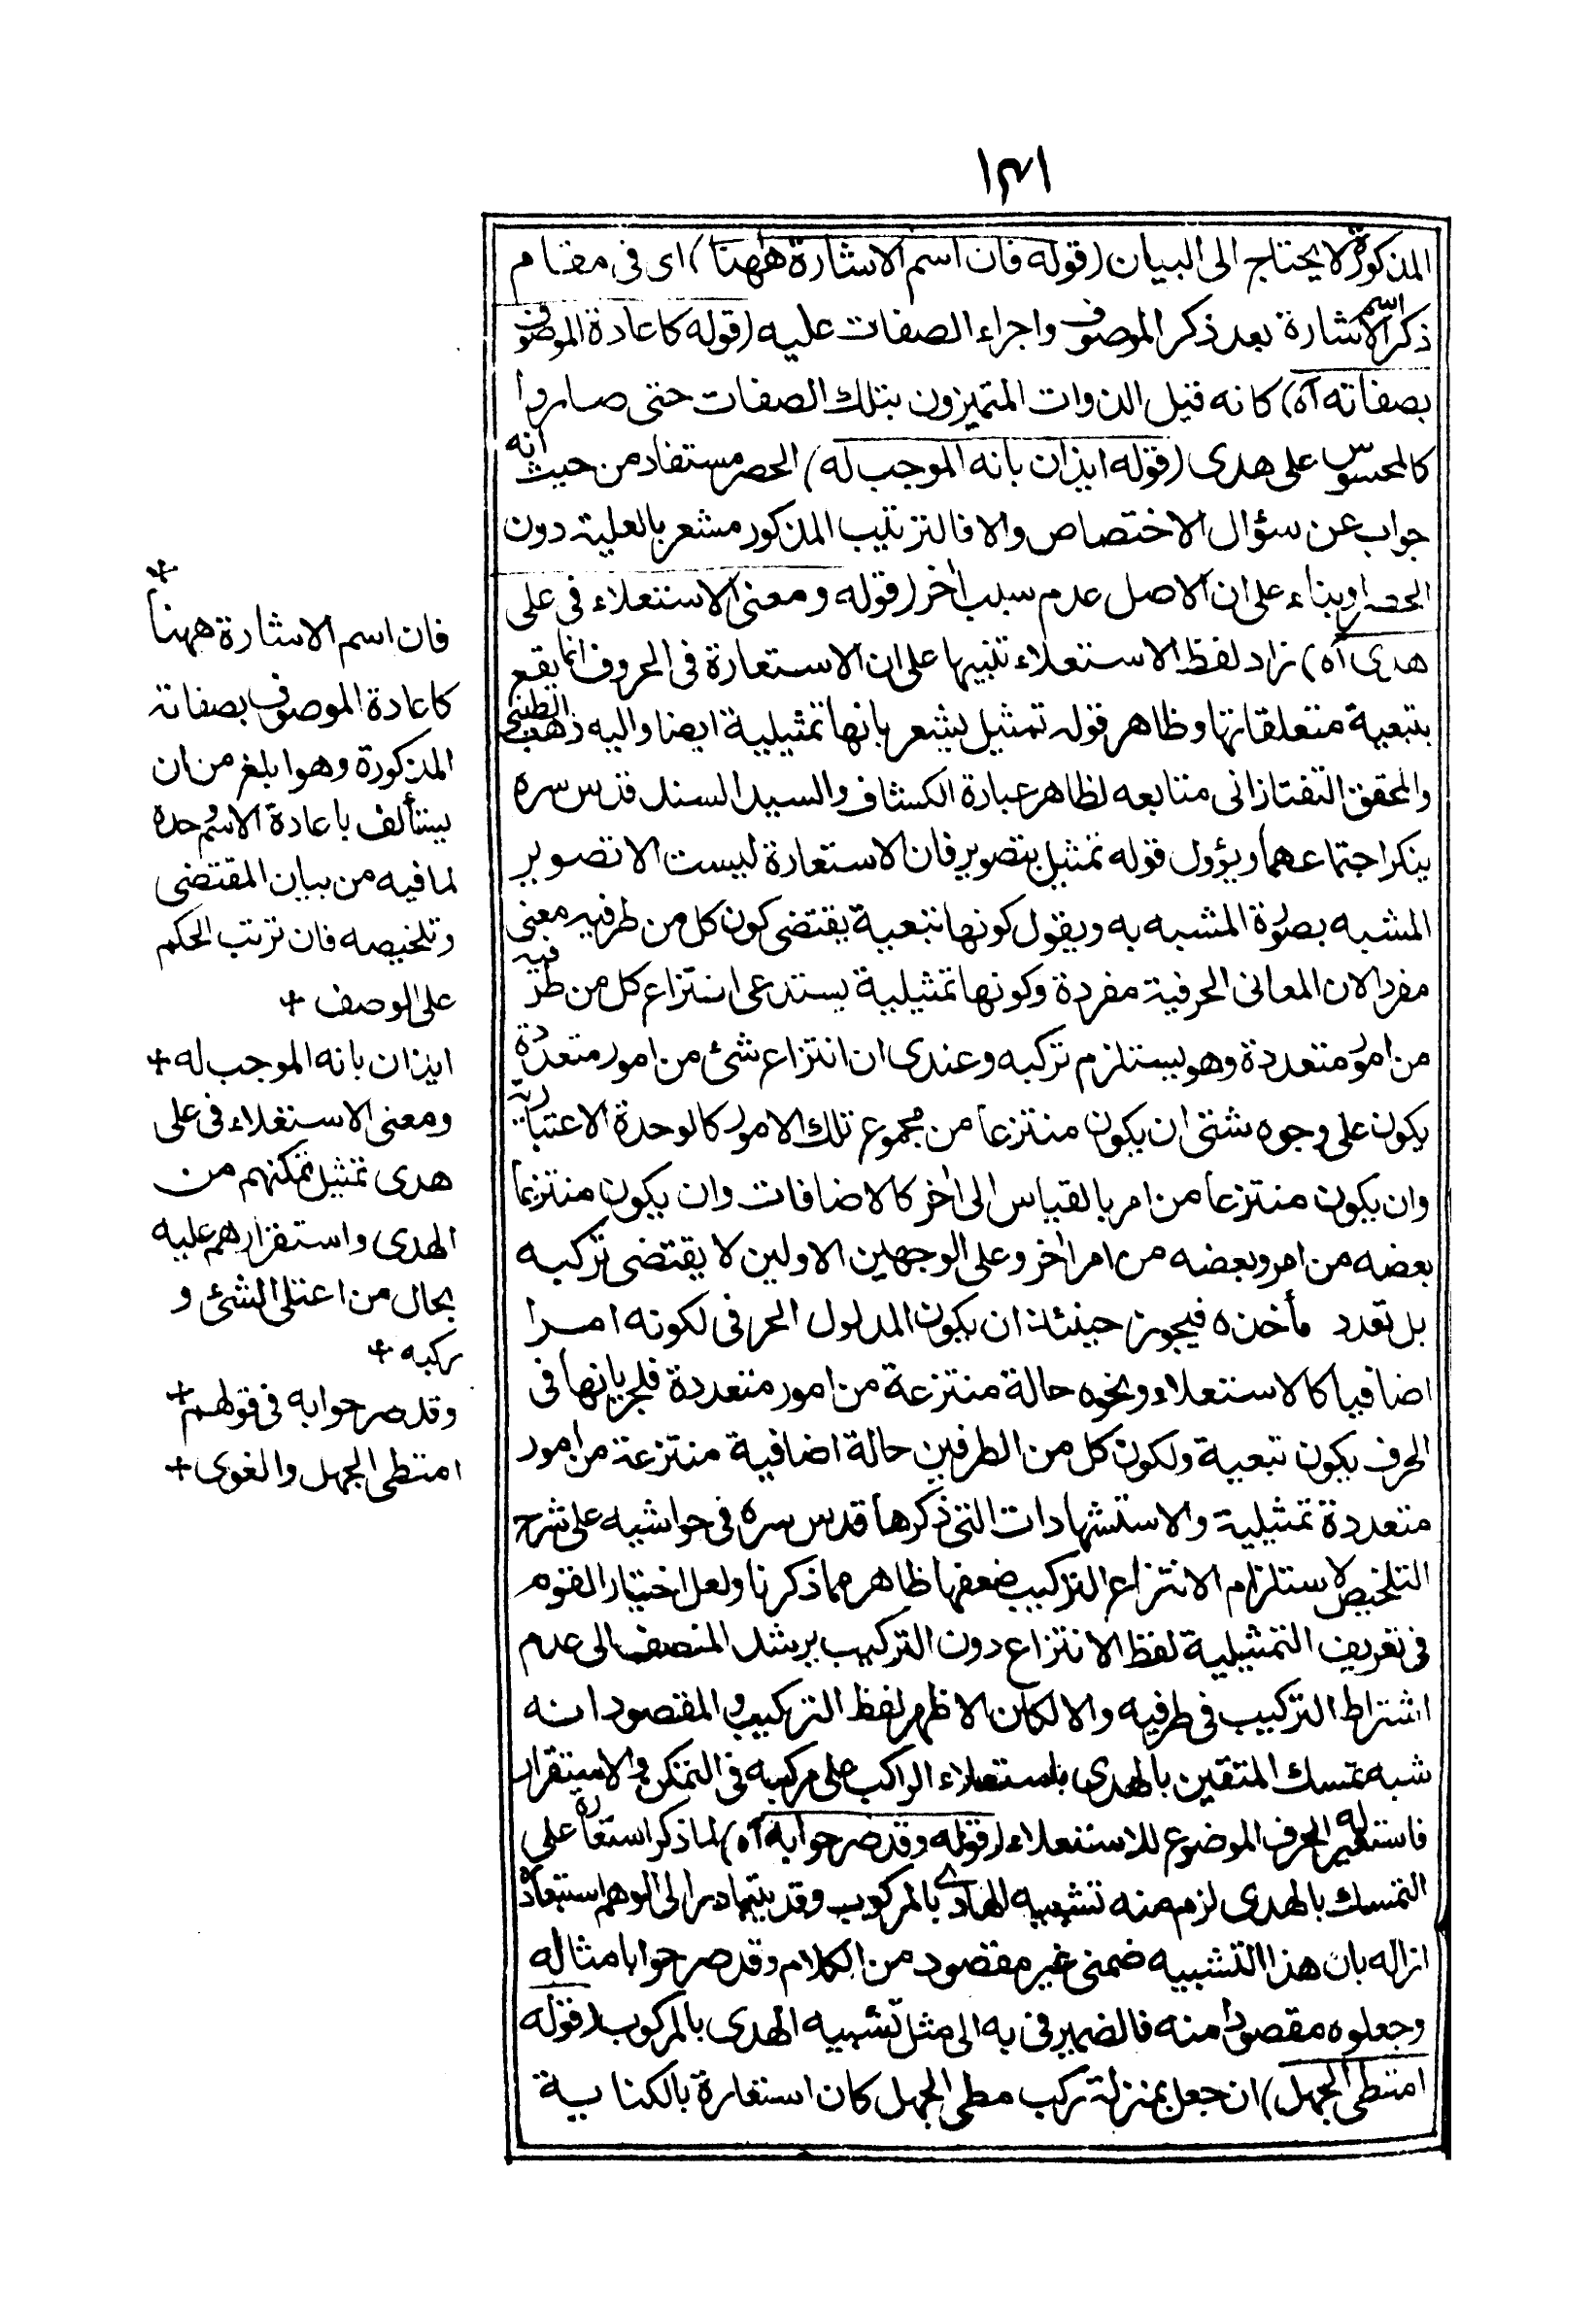 ١٣١
المذكورة لا يحتاج الى البيان (قوله فان اسم الاشارة ههنا) اى فى مقام
ذكر اسم الاشارة بعد ذكر الموصوف واجراء الصفات عليه (قوله كاعادة الموصوف
بصفاته آه) كانه قيل الذوات المتميزون بتلك الصفات حتى صاروا
كالمحسوس على هدى (قوله ايذان بانه الموجب له) الحصر مستفاد من حيث انه
جواب عن سؤال الاختصاص والا فالترتيب المذكور مشعر بالعلية دون
الحصر او بناء على ان الاصل عدم سبب اٰخر (قوله ومعنى الاستعلاء فى على
هدى آه) زاد لفظ الاستعلاء تنبيها على ان الاستعارة فى الحروف انما يقع
بتبعية متعلقاتها وظاهر قوله تمثيل يشعر بانها تمثيلية ايضا واليه ذهب الطيبى
والمحقق التفتازانى متابعه لظاهر عبارة الكشاف والسيد السند قدس سره
ينكر اجتماعهما ويؤول قوله تمثيل بتصوير فان الاستعارة ليست الا تصوير
المشبه بصورة المشبه به ويقول كونها تبعية يقتضى كون كل من طرفيه معنى
مفردا لان المعانى الحرفية مفردة وكونها تمثيلية يستدعى انتزاع كل من طرفيه
من امور متعددة وهو يستلزم تركبه وعندى ان انتزاع شئ من امور متعددة
يكون على وجوه شتى ان يكون منتزعا من مجموع تلك الامور كالوحدة الاعتبارية
وان يكون منتزعا من امر بالقياس الى اٰخر كالاضافات وان يكون منتزعا
بعضه من امر وبعضه من امر اٰخر وعلى الوجهين الاولين لا يقتضى تركبه
بل تعدد مأخذه فيجوز حينئذ ان يكون المدلول الحرفى لكونه امرا
اضافيا كالاستعلاء ونحوه حالة منتزعة من امور متعددة فلجريانها فى
الحرف يكون تبعية ولكون كل من الطرفين حالة اضافية منتزعة من امور
متعددة تمثيلية والاستشهادات التى ذكرها قدس سره فى حواشيه على شرح
التلخيص لاستلزام الانتزاع التركيب ضعفها ظاهر مما ذكرنا ولعل اختيار القوم
فى تعريف التمثيلية لفظ الانتزاع دون التركيب يرشد المنصف الى عدم
اشتراط التركيب فى طرفيه والا لكان الاظهر لفظ التركيب والمقصود انه
شبه تمسك المتقين بالهدى باستعلاء الراكب على مركبه فى التمكن والاستقرار
فاستعير له الحرف الموضوع للاستعلاء (قوله وقد صرحوا به آه) لما ذكر استعارة على
التمسك بالهدى لزم منه تشبيه الهدى بالمركوب وقد يتبادر الى الوهم استبعاده
ازاله بان هذا التشبيه ضمنى غير مقصود من الكلام وقد صرحوا بامثاله
وجعلوه مقصودا منه فالضمير فى به الى مثل تشبيه الهدى بالمركوب (قوله
امتطى الجهل) ان جعل بمنزلة ركب مطى الجهل كان استعارة بالكناية
فان اسم الاشارة ههنا
كاعادة الموصوف بصفاته
المذكورة وهو ابلغ من ان
يستأنف باعادة الاسم وحده
لما فيه من بيان المقتضى
وتلخيصه فان ترتب الحكم
على الوصف +
ايذان بانه الموجب له +
ومعنى الاستعلاء فى على
هدى تمثيل تمكنهم من
الهدى واستقرارهم عليه
بحال من اعتلى الشئ و
ركبه +
وقد صرحوا به فى قولهم +
امتطى الجهل والغوى +